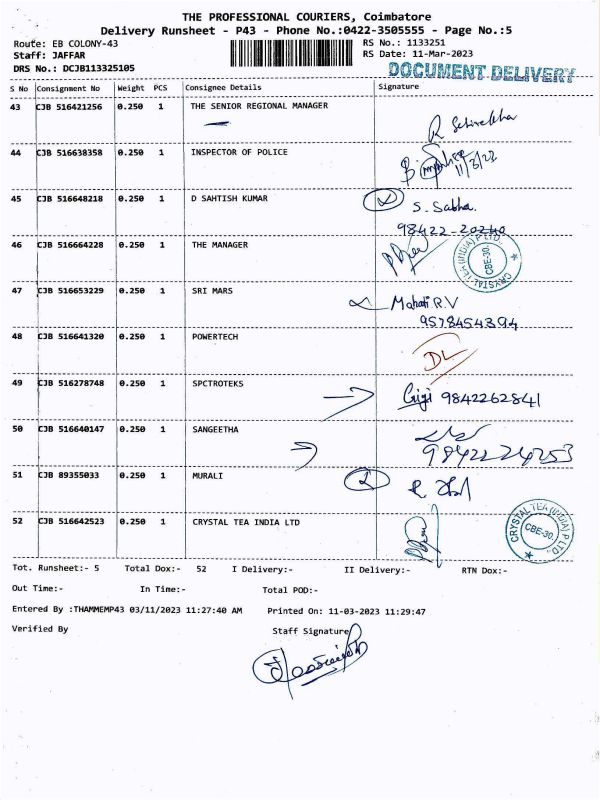 THE PROFESSIONAL COURIERS, Coimbatore
Delivery Runsheet - P43 - Phone No.:0422-3505555 - Page No.:5
Route: EB COLONY-43 RS No.: 1133251
Staff: JAFFAR RS Date: 11-Mar-2023
DRS No.: DCJB113325105 DOCUMENT DELIVERY
S No Consignment No Weight PCS Consignee Details Signature
43 CJB 516421256 0.250 1 THE SENIOR REGIONAL MANAGER
44 CJB 516638358 0.250 1 INSPECTOR OF POLICE 11/3/23
45 CJB 516648218 0.250 1 D SAHTISH KUMAR S. Sabha
98422-20240
46 CJB 516664228 0.250 1 THE MANAGER CRYSTAL TEA (INDIA) P LTD. CBE-30.
47 CJB 516653229 0.250 1 SRI MARS Mahati R.V
9578454394
48 CJB 516641320 0.250 1 POWERTECH DL
49 CJB 516278748 0.250 1 SPCTROTEKS Gigi 9842262841
50 CJB 516640147 0.250 1 SANGEETHA
9842224253
51 CJB 89355033 0.250 1 MURALI
52 CJB 516642523 0.250 1 CRYSTAL TEA INDIA LTD CRYSTAL TEA (INDIA) P LTD. CBE-30.
Tot. Runsheet:- 5 Total Dox:- 52 I Delivery:- II Delivery:- RTN Dox:-
Out Time:- In Time:- Total POD:-
Entered By :THAMMEMP43 03/11/2023 11:27:40 AM Printed On: 11-03-2023 11:29:47
Verified By Staff Signature